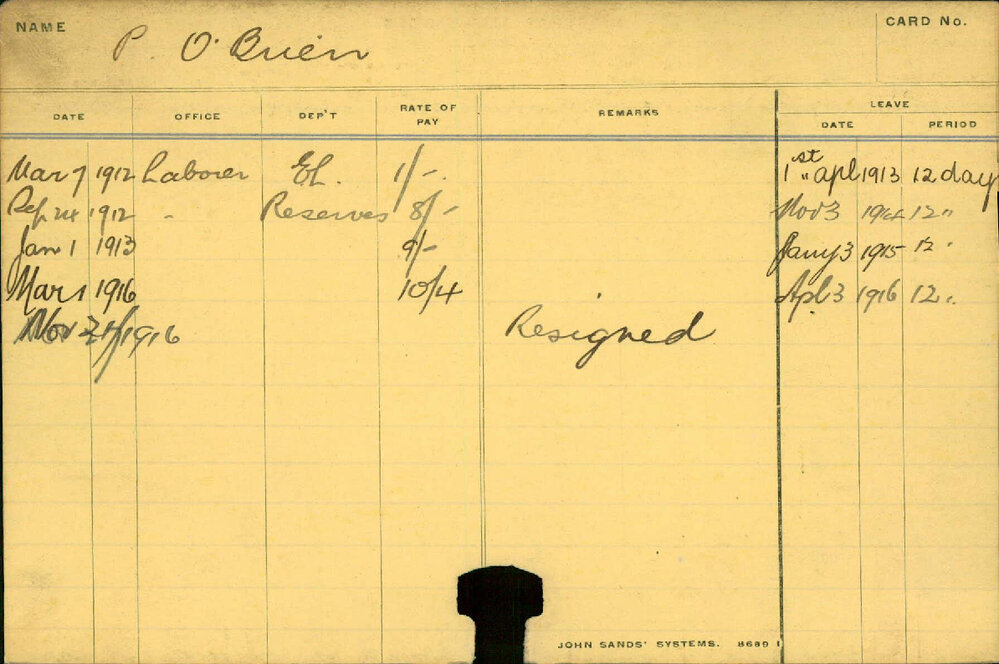 NAME P. O'Brien CARD No.
DATE OFFICE DEP'T RATE OF PAY REMARKS LEAVE
DATE PERIOD
Mar 7 1912 Laborer El. 1/-. 1st " apl 1913 12 days
Sep 24 1912 " Reserves 8/- Nov 3 1914 12 "
Jan 1 1913 9/- Jany 3 1915 12 "
Mar 1 1916 10/4 Apl 3 1916 12 "
Nov 1916 Resigned
JOHN SANDS' SYSTEMS. 8689